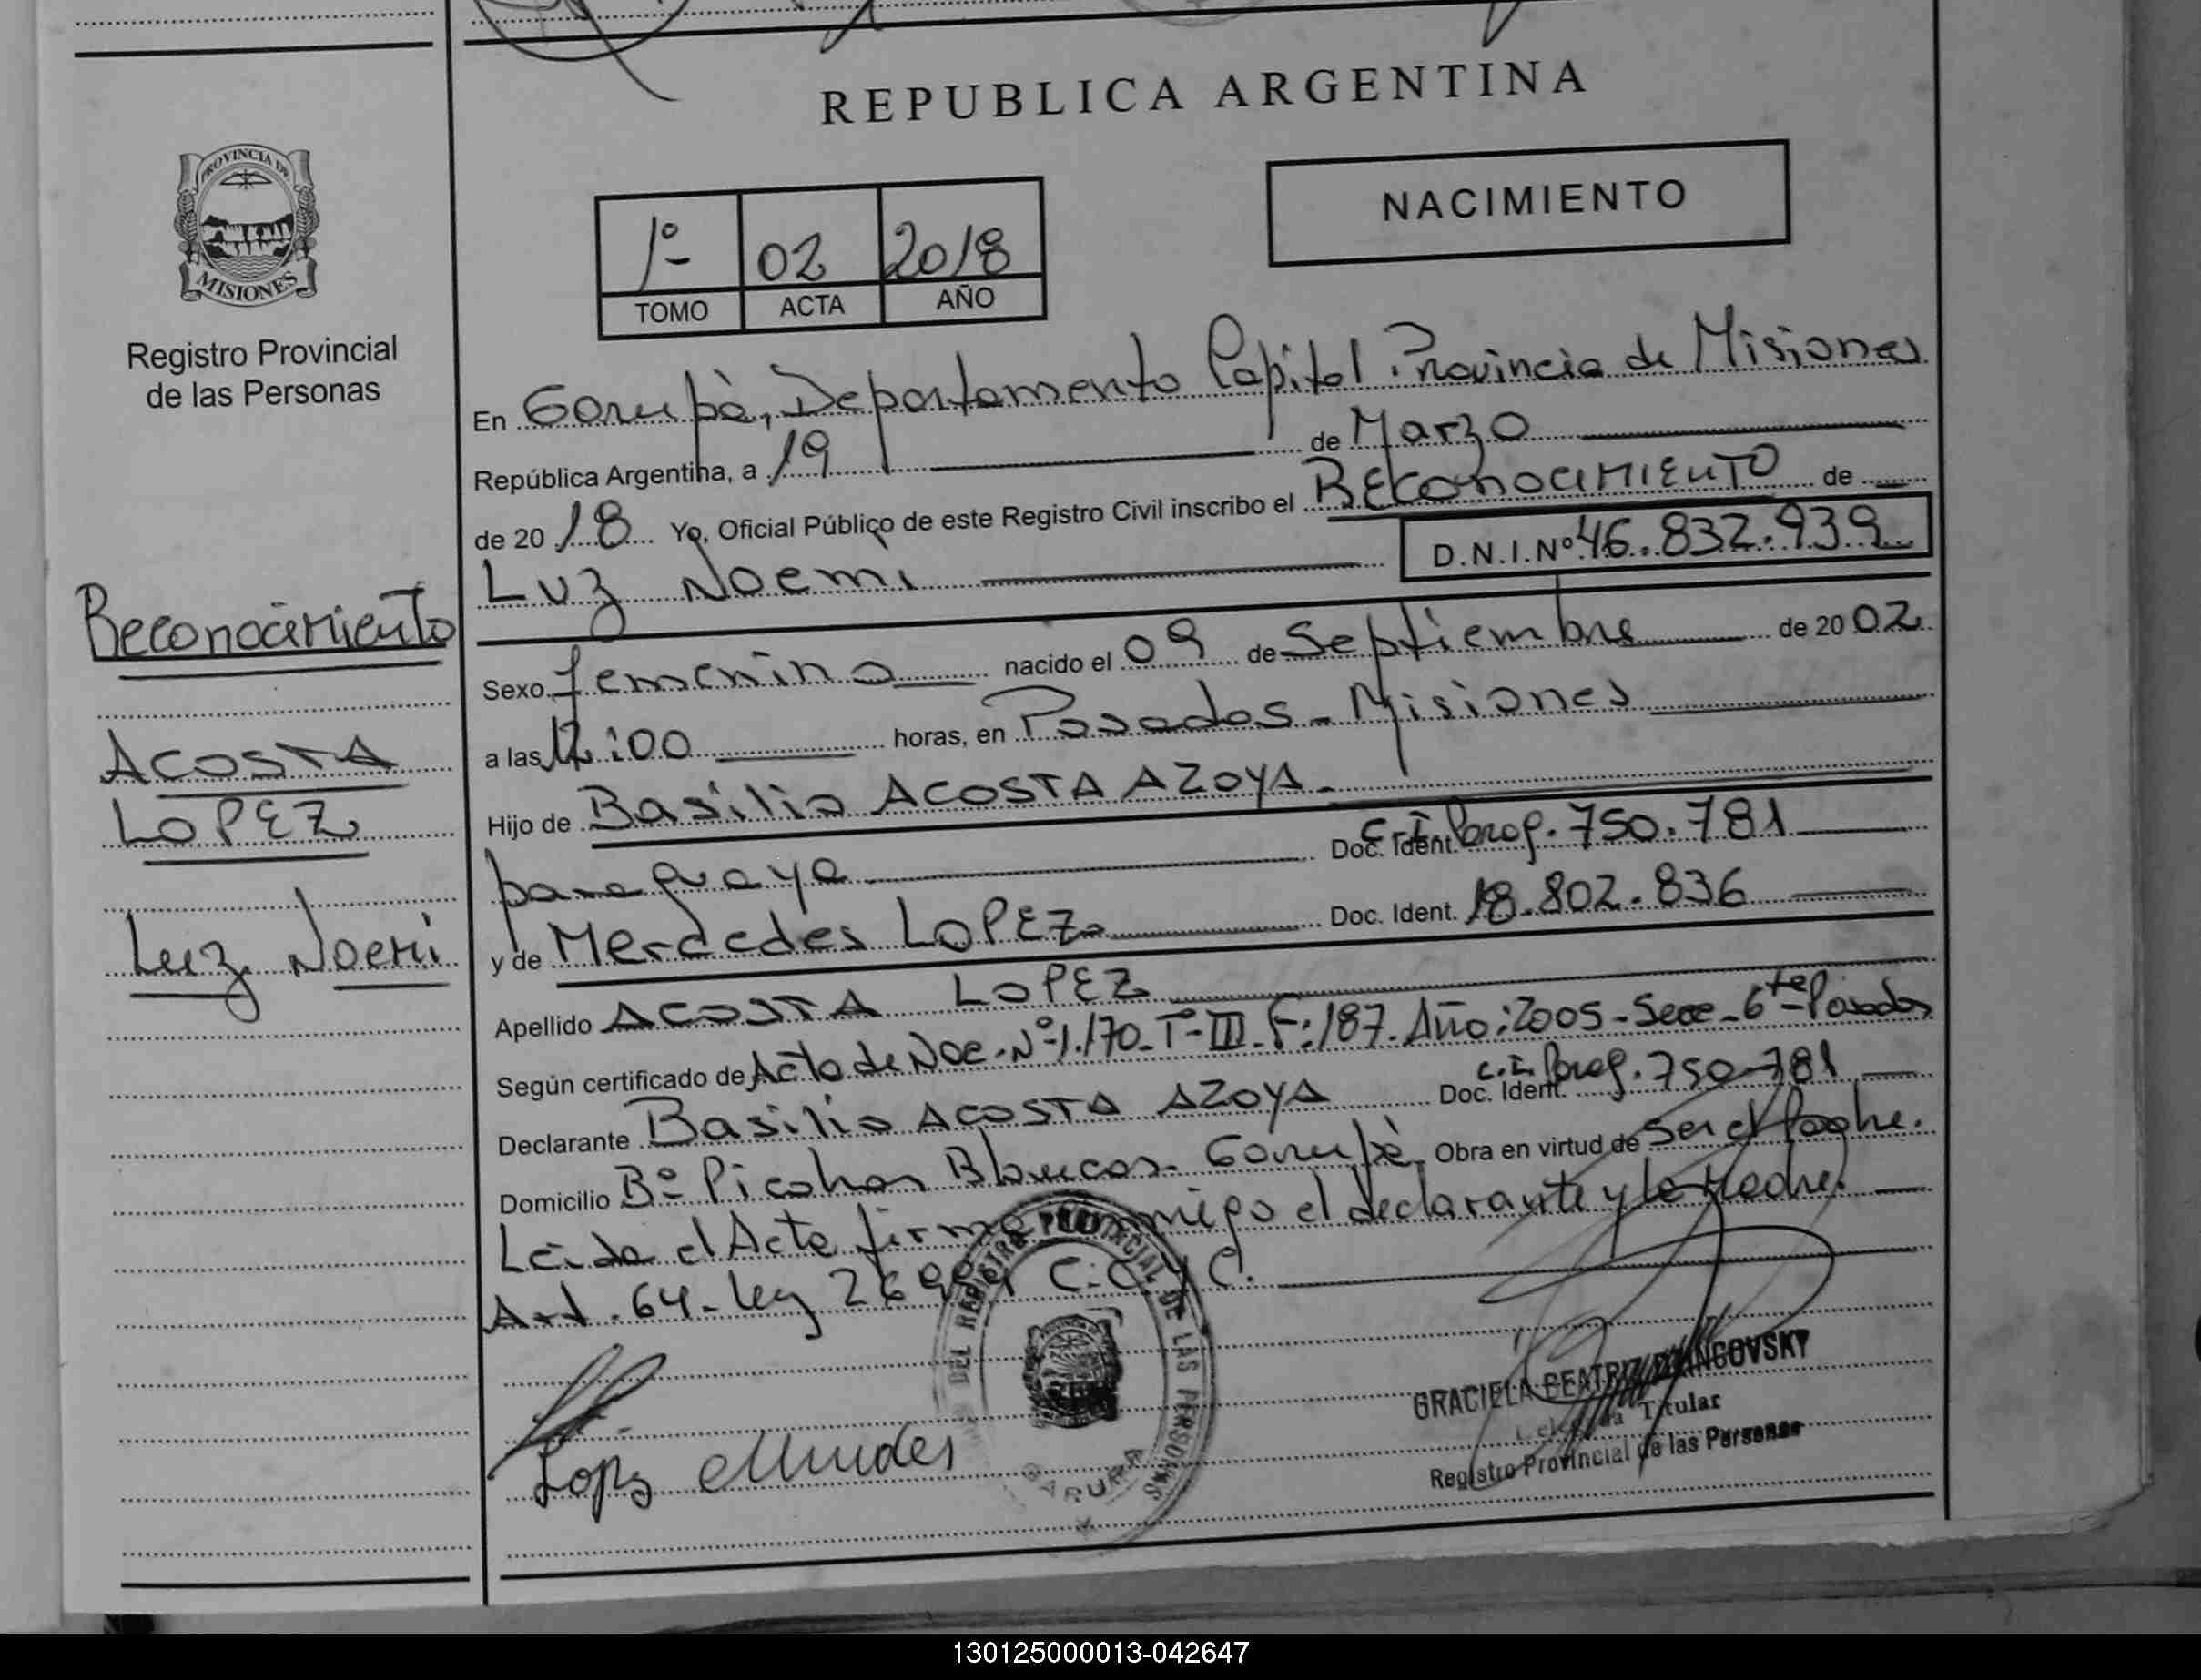 REPUBLICA ARGENTINA
PROVINCIA DE
MISIONES
Registro Provincial
de las Personas
1º 02 2018
TOMO ACTA AÑO
NACIMIENTO
En Garupà, Departamento Capital. Provincia de Misiones
República Argentina, a 19 de Marzo
de 2018 Yo, Oficial Público de este Registro Civil inscribo el RECONOCIMIENTO de
Luz Noemi D.N.I.Nº 46.832.939
Reconocimiento
ACOSTA
LOPEZ
Luz Noemi
Sexo femenino nacido el 09 de Septiembre de 2002
a las 12:00 horas, en Posadas - Misiones
Hijo de Basilio ACOSTA AZOYA.
paraguaya Doc. Ident. C.I. Parag. 750.781
y de Merdedes LOPEZ Doc. Ident. 18.802.836
Apellido ACOSTA LOPEZ
Según certificado de Acta de Nac. Nº 1.170 - Tº - III - F: 187. Año: 2005 - Secc - 6ta - Posadas
Declarante Basilio ACOSTA AZOYA Doc. Ident. C.I. Parag. 750-781
Domicilio Bº Blancas - Garupè Obra en virtud de Ser el Padre.
Leida el Acta firma conmigo el declarante y la Madre.
Art. 64 - Ley 26994 C.C.y C.
DEL REGISTRO PROVINCIAL DE LAS PERSONAS
GARUPA
GRACIELA BEATRIZ
Titular
Registro Provincial de las Personas
130125000013-042647